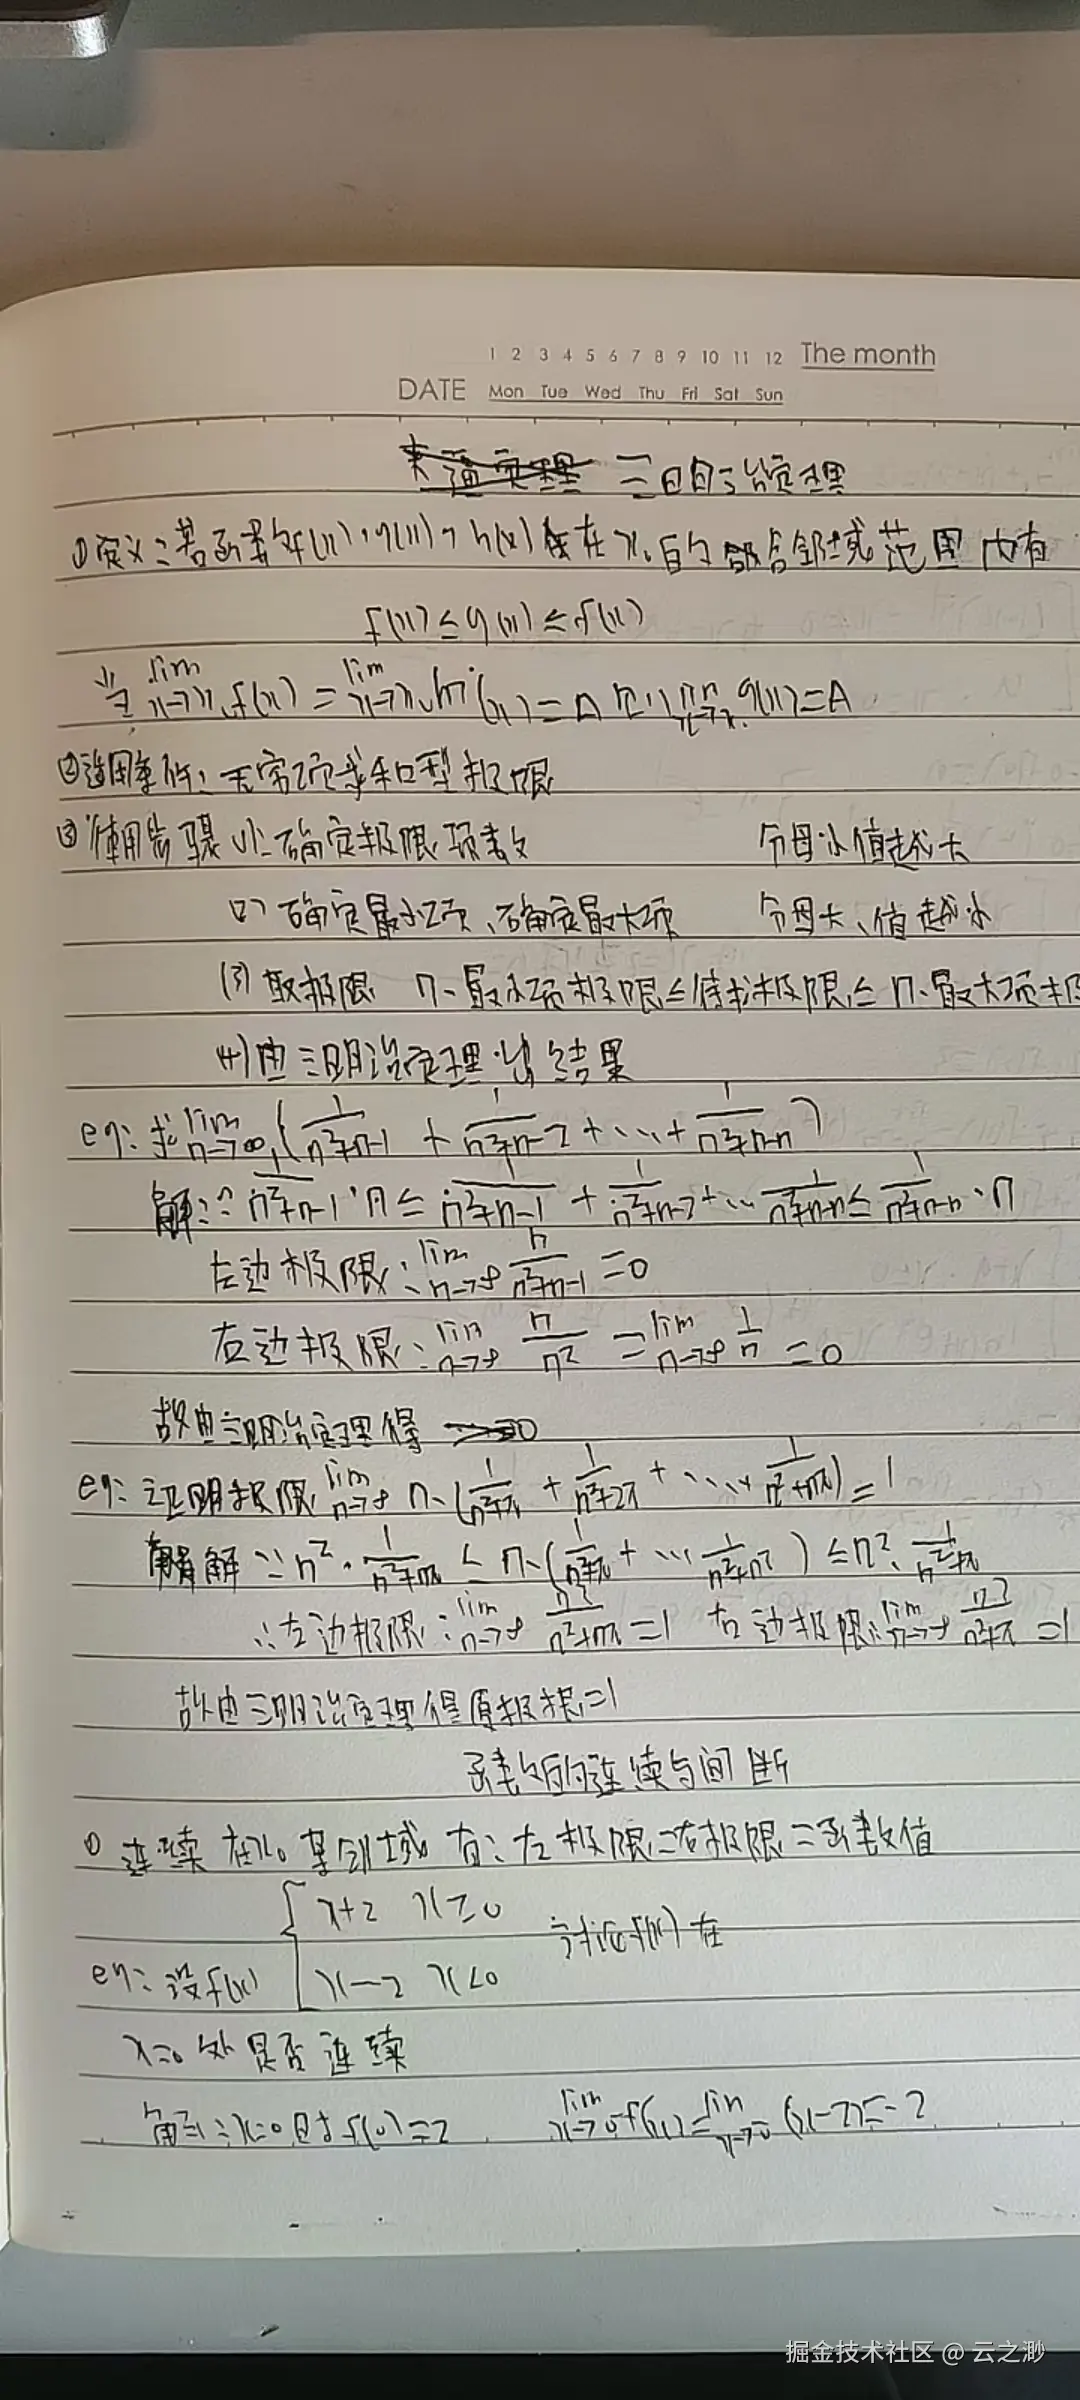 1 2 3 4 5 6 7 8 9 10 11 12 The month
DATE Mon Tue Wed Thu Fri Sat Sun
夹逼定理 三明治定理
①定义:若函数f(x)、g(x)、h(x)在x₀的邻域范围内有
f(x)≤g(x)≤f(x)
当lim x→x₀ f(x)=lim x→x₀ h(x)=A 则lim x→x₀ g(x)=A
②适用条件:无穷项求和型极限
③使用步骤 (1)确定极限项数 分母小值越大
(2)确定最小项、确定最大项 分母大、值越小
(3)取极限 n·最小项极限≤待求极限≤n·最大项极
(4)由三明治定理出结果
eg:求lim n→∞(1/(n²+n-1) + 1/(n²+n-2)+…+1/(n²+n-n))
解:∵1/(n²+n-1)·n≤1/(n²+n-1)+1/(n²+n-2)+…1/(n²+n-n)≤1/(n²+n-n)·n
左边极限:lim n→∞ n/(n²+n-1)=0
右边极限:lim n→∞ n/n²=lim n→∞ 1/n=0
故由三明治定理得 0
eg:证明极限lim n→∞ n·(1/(n²+π)+1/(n²+2π)+…+1/(n²+nπ))=1
解∵n²·1/(n²+nπ)≤n·(1/(n²+π)+…1/(n²+n²))≤n²·1/(n²+π)
∴左边极限:lim n→∞ n²/(n²+nπ)=1 右边极限:lim n→∞ n²/(n²+π)=1
故由三明治定理得原极限=1
函数的连续与间断
① 连续 在x₀某邻域有:左极限=右极限=函数值
eg:设f(x) { x+2 x≥0 讨论f(x)在
x-2 x<0
x=0处是否连续
解:x=0时f(0)=2 lim x→0⁻ f(x)=lim x→0⁻ (x-2)=-2
掘金技术社区 @ 云之渺